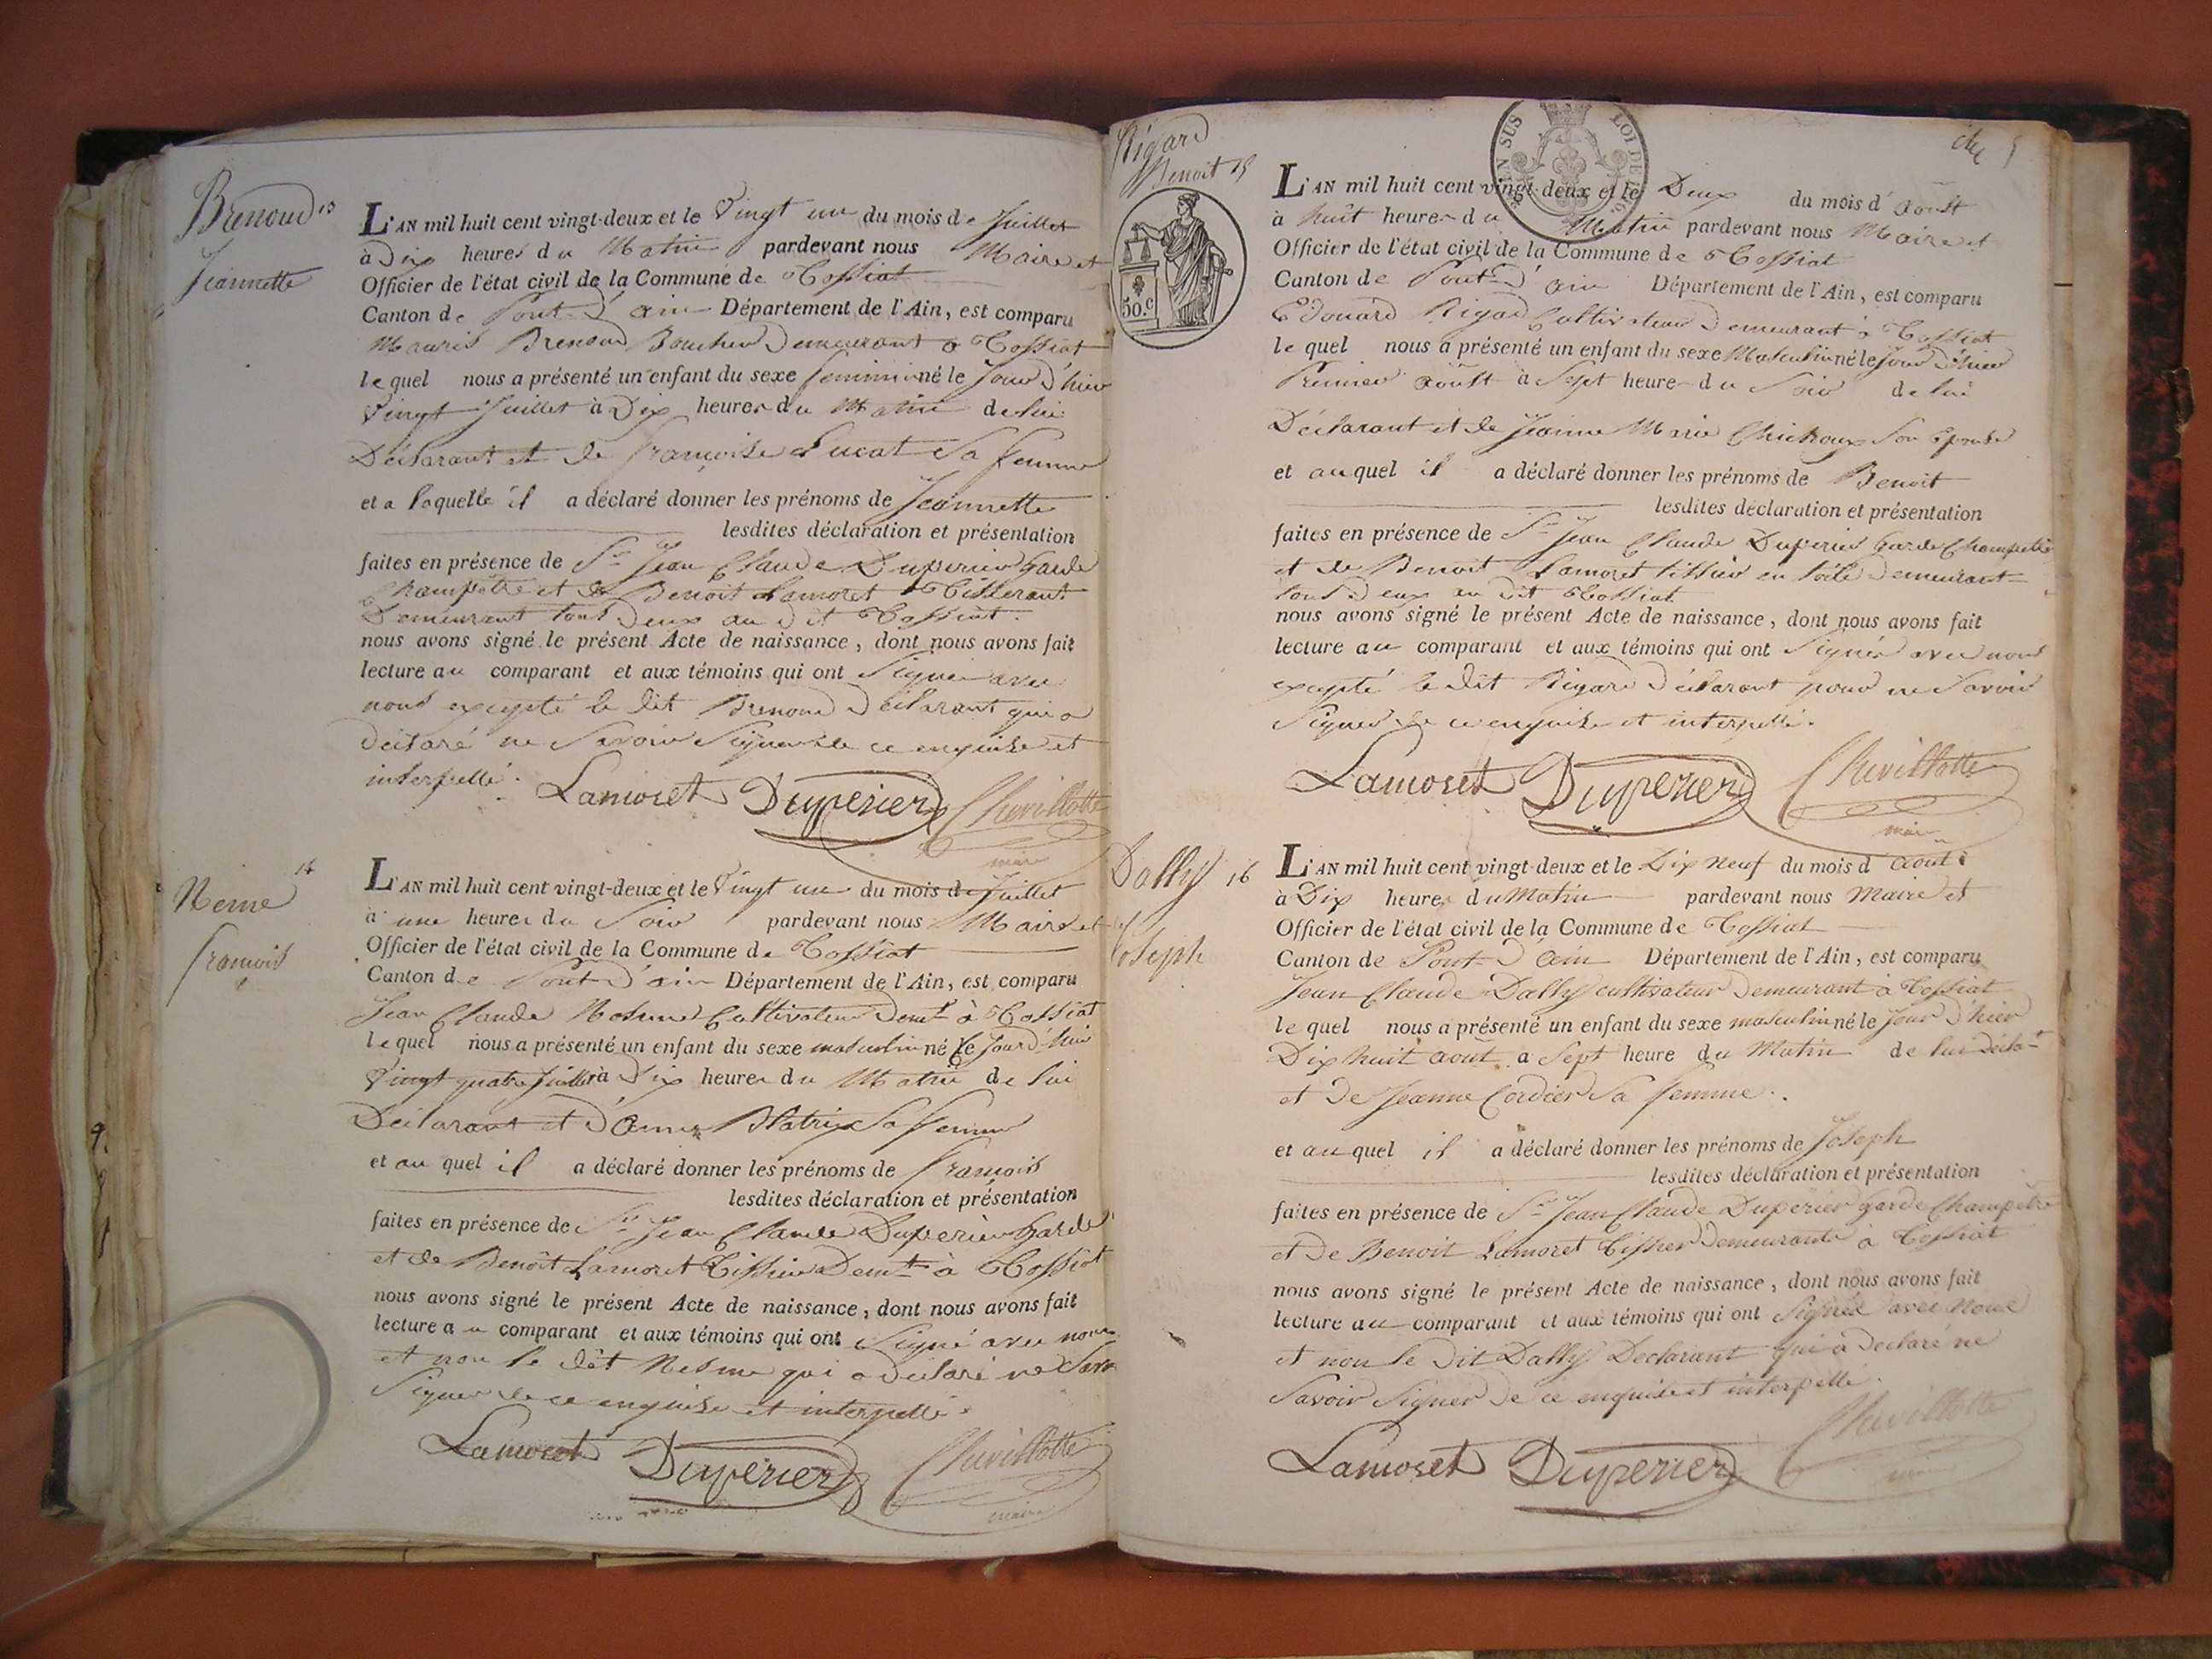 Brenoud 13
Jeannette
L'AN mil huit cent vingt-deux et le Vingt un du mois de Juillet
à Dix heures du Matin pardevant nous Maire et
Officier de l'état civil de la Commune de Tossiat
Canton de Pont d'ain Département de l'Ain, est comparu
Mauris Brenoud Boucher Demeurant à Tossiat
lequel nous a présenté un enfant du sexe feminin né le Jour d'hier
Vingt Juillet à Dix heures du Matin de lui
Déclarant et de françoise Sa femme
et a laquelle il a déclaré donner les prénoms de Jeannette
lesdites déclaration et présentation
faites en présence de Sr Jean Claude Duperier Garde
Champêtre et de Benoit Lamoret Tisserant
Demeurant tous Deux au Dit Tossiat.
nous avons signé le présent Acte de naissance, dont nous avons fait
lecture au comparant et aux témoins qui ont Signés avec
nous excepté le dit Brenoud Déclarant qui a
déclaré ne Savoir Signer de ce enquise et
interpellé.
Lamoret Duperier Chevillotte
maire
14
Neme
françois
L'AN mil huit cent vingt-deux et le Vingt un du mois de Juillet
à une heures du Soir pardevant nous Maire et
Officier de l'état civil de la Commune de Tossiat
Canton de Pont d'ain Département de l'Ain, est comparu
Jean Claude Cultivateur Demt à Tossiat
lequel nous a présenté un enfant du sexe masculin né le Jour d'hier
Vingt quatre Juillet à Dix heures du Matin de lui
Déclarant et d'Anne Blatrix Sa femme
et au quel il a déclaré donner les prénoms de françois
lesdites déclaration et présentation
faites en présence de Sr Jean Claude Duperier Garde
et de Benoît Lamoret Tissier Demt à Tossiat
nous avons signé le présent Acte de naissance, dont nous avons fait
lecture au comparant et aux témoins qui ont Signé avec nous
et non le dit Nesme qui a déclaré ne Savoir
Signer de ce enquise et interpellé.
Lamoret Duperier Chevillotte
maire
Rigard
Benoit 15
50.c
LOI DE
L'AN mil huit cent vingt-deux et le Deux du mois d'août
à huit heures du Matin pardevant nous Maire et
Officier de l'état civil de la Commune de Tossiat
Canton de Pont d'ain Département de l'Ain, est comparu
Edouard Rigard Cultivateur Demeurant à Tossiat
lequel nous a présenté un enfant du sexe Masculin né le Jour d'hier
Premier août à Sept heures du Soir de lui
Déclarant et de Jeanne Marie Chichoux Son Epouse
et auquel il a déclaré donner les prénoms de Benoit
lesdites déclaration et présentation
faites en présence de Sr Jean Claude Duperier Garde Champêtre
et de Benoit Lamoret tissier en toile Demeurant
tous Deux au Dit Tossiat
nous avons signé le présent Acte de naissance, dont nous avons fait
lecture au comparant et aux témoins qui ont Signés avec nous
excepté le dit Rigard Déclarant pour ne Savoir
Signer de ce enquise et interpellé.
Lamoret Duperier Chevillotte
maire
Dally 16
Joseph
L'AN mil huit cent vingt-deux et le Dix neuf du mois d'août
à Dix heures du Matin pardevant nous Maire et
Officier de l'état civil de la Commune de Tossiat
Canton de Pont d'ain Département de l'Ain, est comparu
Jean Claude Dally cultivateur Demeurant à Tossiat
lequel nous a présenté un enfant du sexe masculin né le Jour d'hier
Dix huit août à Sept heure du Matin de lui Déclat
et de Jeanne Cordier Sa femme.
et auquel il a déclaré donner les prénoms de Joseph
lesdites déclaration et présentation
faites en présence de Sr Jean Claude Duperier garde Champêtre
et De Benoit Lamoret Tissier Demeurants à Tossiat
nous avons signé le présent Acte de naissance, dont nous avons fait
lecture au comparant et aux témoins qui ont Signée avec nous
et non le Dit Dally Declarant qui a declaré ne
Savoir Signer de ce enquise et interpellé.
Lamoret Duperier Chevillotte
maire